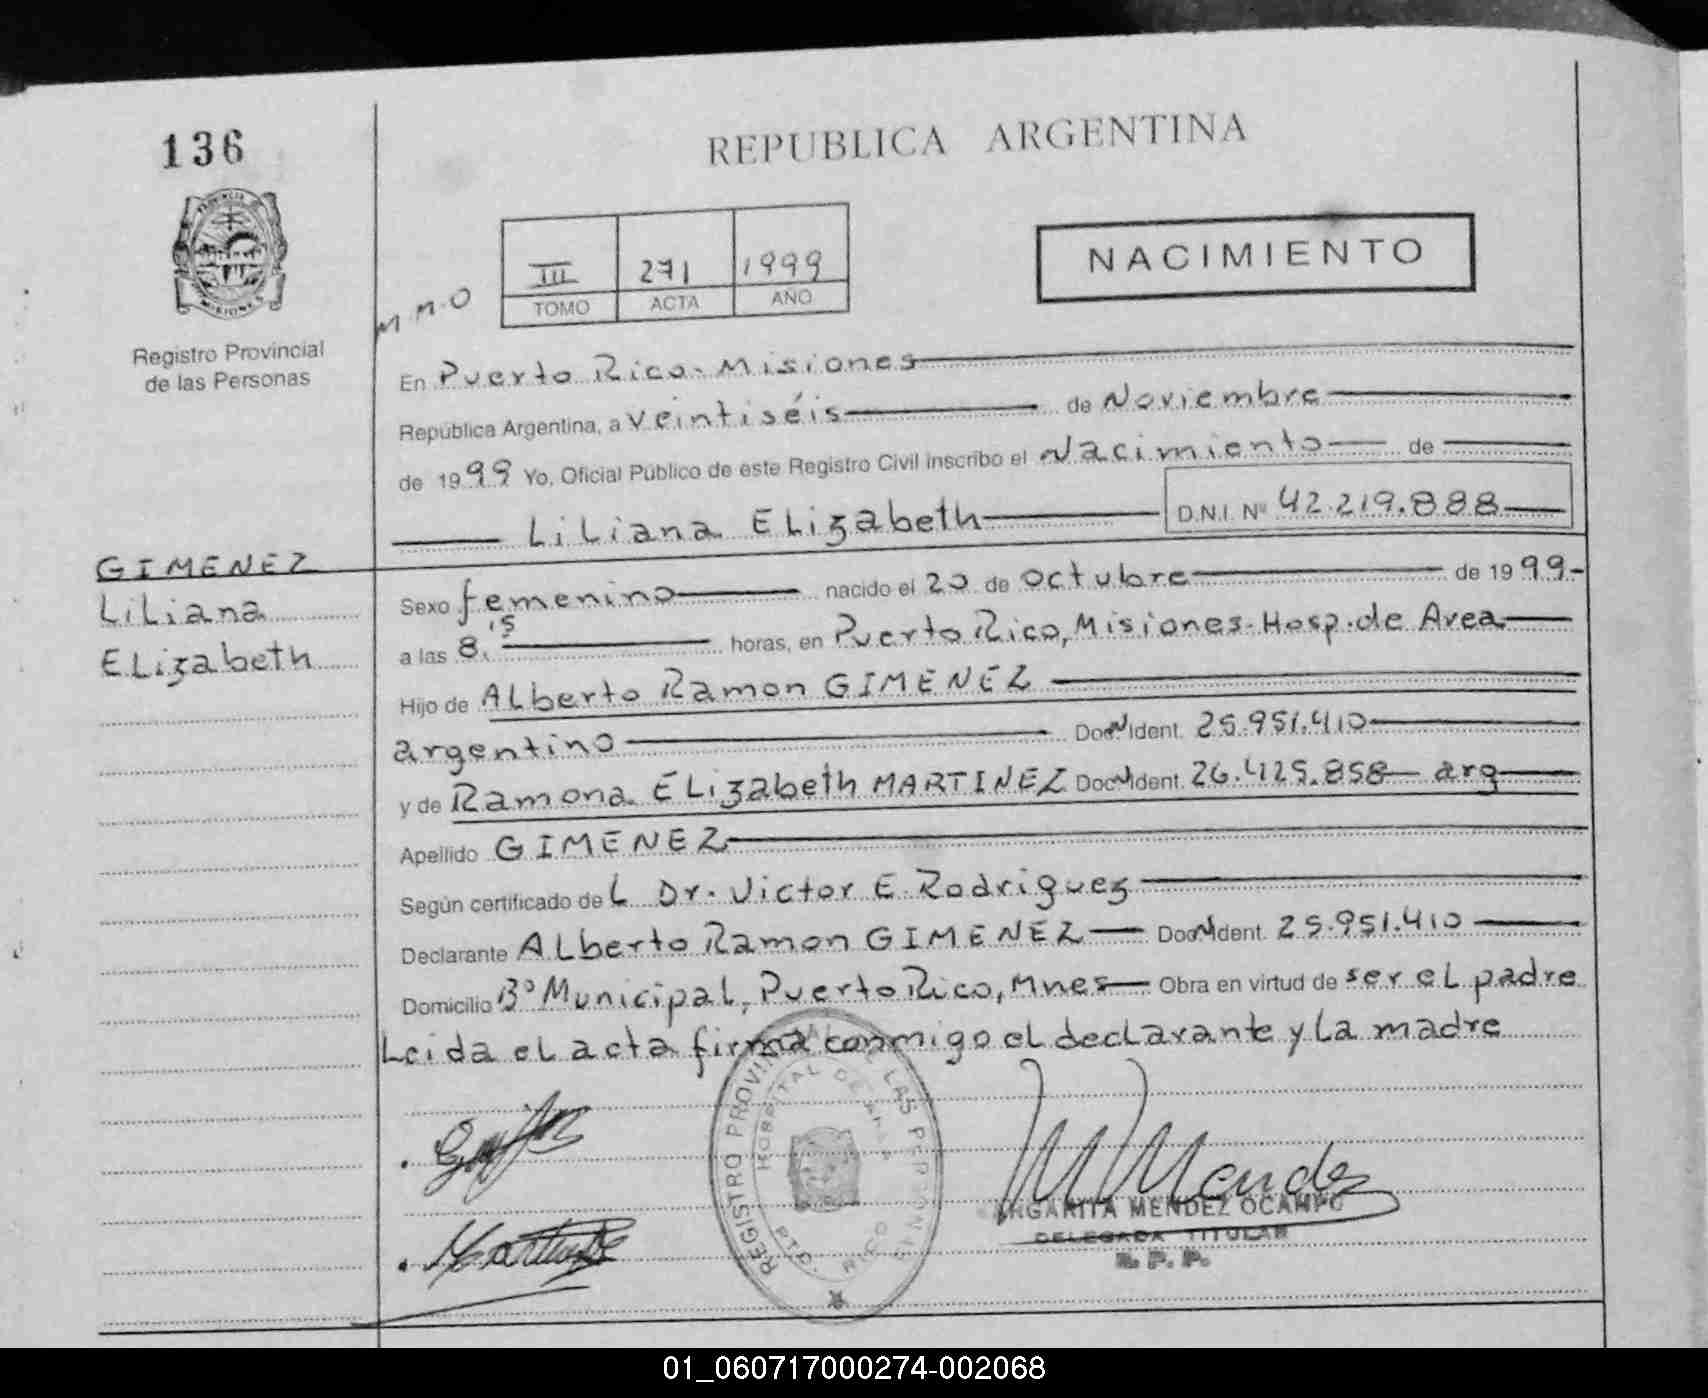 136
REPUBLICA ARGENTINA
PROVINCIA DE
MISIONES
Registro Provincial
de las Personas
III 271 1999
TOMO ACTA AÑO
NACIMIENTO
M M O
En Puerto Rico - Misiones
República Argentina, a veintiséis de Noviembre
de 1999 Yo, Oficial Público de este Registro Civil inscribo el Nacimiento de
Liliana Elizabeth D.N.I. Nº 42.219.888
GIMENEZ
Liliana
Elizabeth
Sexo femenino nacido el 20 de octubre de 1999-
a las 8,15 horas, en Puerto Rico, Misiones - Hosp. de Area
Hijo de Alberto Ramon GIMENEZ
argentino Doc N Ident. 25.951.410
y de Ramona Elizabeth MARTINEZ Doc N Ident. 26.425.858 arg
Apellido GIMENEZ
Según certificado del Dr. Victor E. Rodriguez
Declarante Alberto Ramon GIMENEZ Doc N Ident. 25.951.410
Domicilio Bº Municipal, Puerto Rico, Mnes Obra en virtud de ser el padre
Leida el acta firma conmigo el declarante y la madre
REGISTRO PROVINCIAL DE LAS PERSONAS
HOSPITAL DE AREA
PTO. RICO
M Mendez
MARGARITA MENDEZ OCAMPO
DELEGADA TITULAR
R. P. P.
01_060717000274-002068